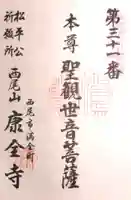 第三十一番
本尊 聖觀世音菩薩
西尾市満全町
松平公
祈願所
西尾山 康全寺